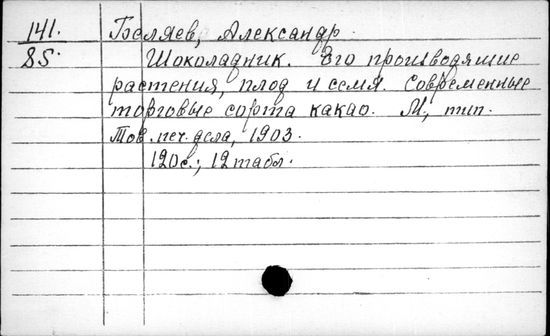 141. Беляев, Александр.
85. Шоколадник. Его производящие
растения, плод и семя. Современные
торговые сорта какао. М., тип.
Тов. печ. дела, 1903.
120с.; 12 табл.